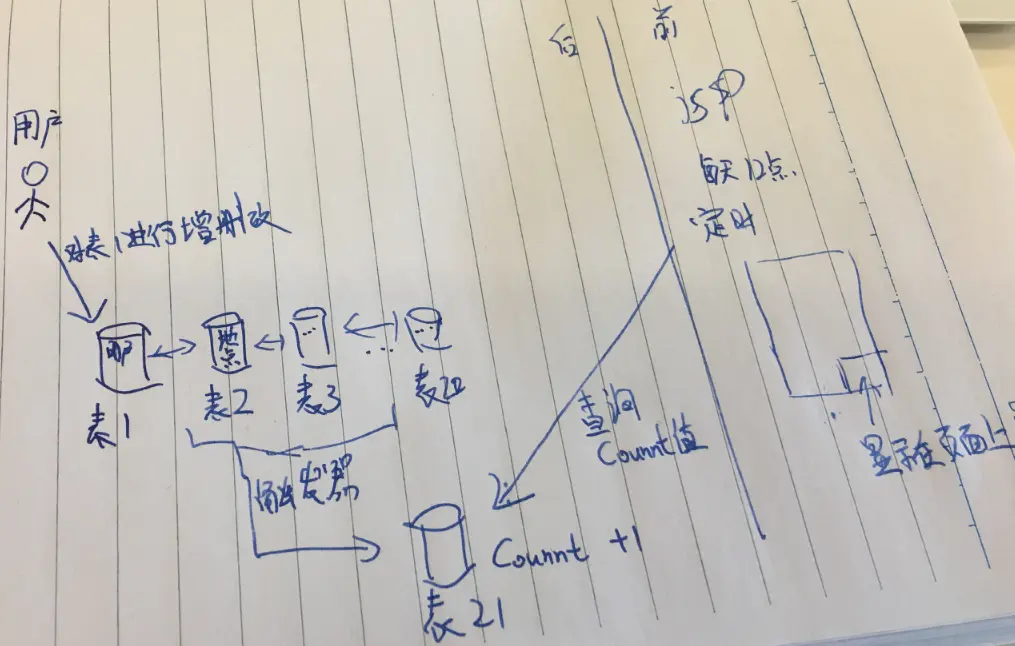 后
前
用户
jSP
每天12点
定时
对表1进行增删改
用户
地点
...
...
...
表1
表2
表3
表20
查询
Counnt值
显示在页面上
触发器
Counnt +1
表21